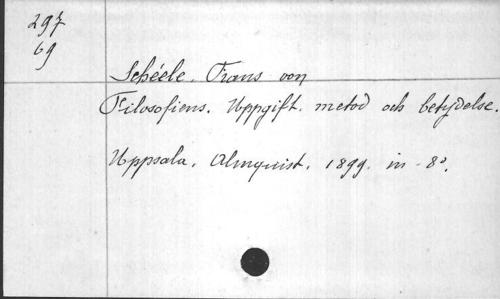 297
69
Schéele, Frans von
Filosofiens. Uppgift. metod och betydelse.
Uppsala, Almquist. 1899. in-8°.